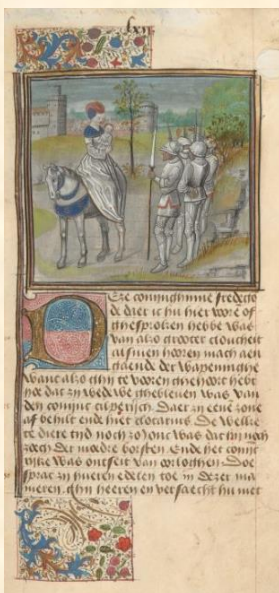 lxij
Deze coninghinne fredegonde
de diet ic hu hier vore of
ghesproken hebbe was
van also grooter cloucheit
als men hooren mach aen
gaende der wapeninghe
want also ghij te vooren ghehoort hebt
hoe dat zy wedewe ghebleven was van
den coninc Daer zy eene zone
af behilt ende hiet clotarius De welke
te diere tijd noch zo jonc was dat hij noch
zoech der moedre borsten Ende het coninc
rijke was ontset van orloghen Doe
sprac zy hueren edelen toe in dezer ma
nieren Ghij heeren en verscaecht hu niet